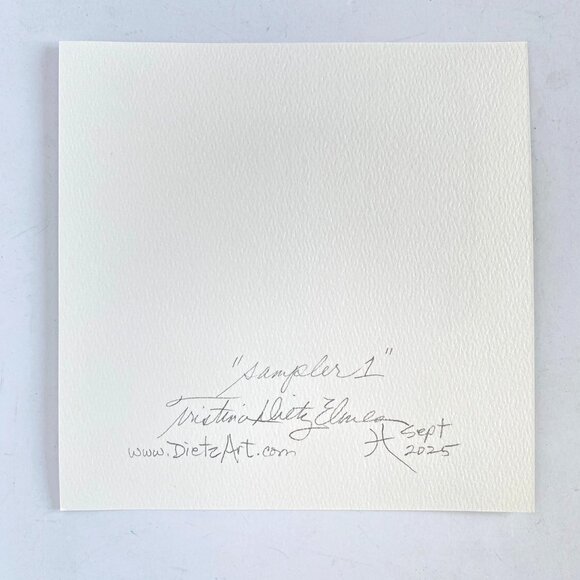 "Sampler 1"
Tristina Dietz Elmes
www.DietzArt.com
Sept
2025